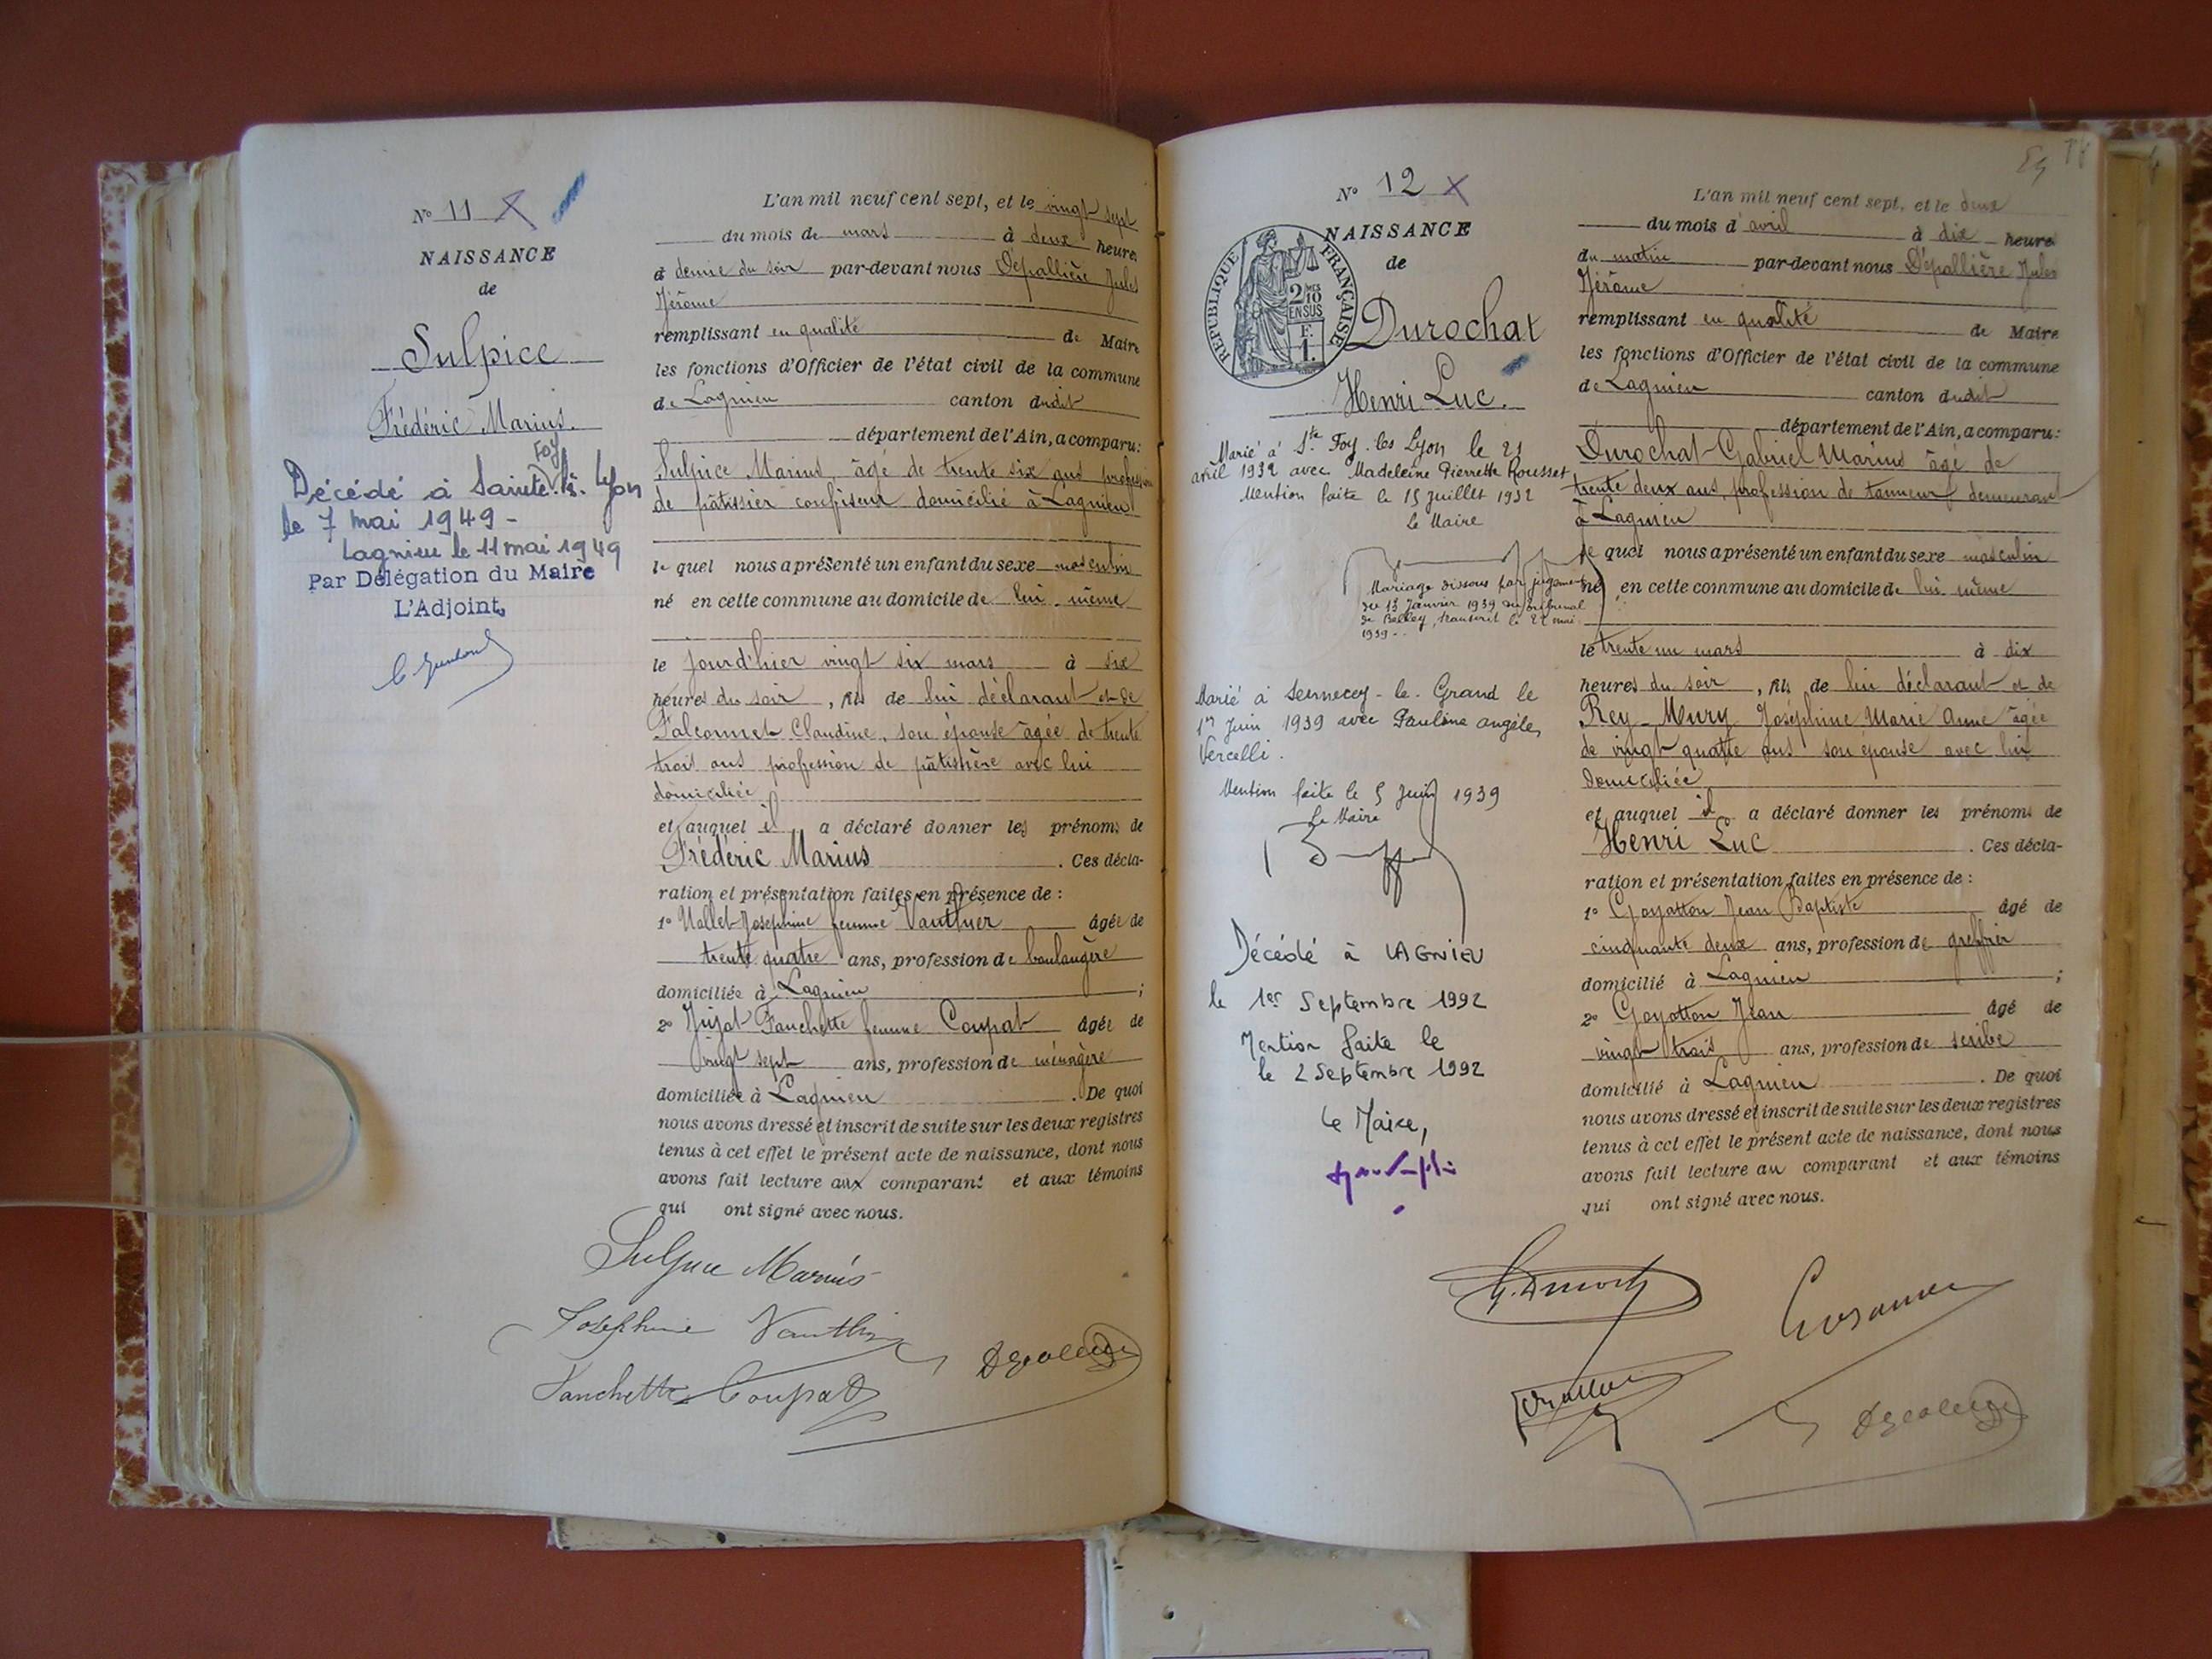 N° 11
NAISSANCE
de
Sulpice
Frédéric Marius.
Décédé à Sainte Foy lès Lyon
le 7 mai 1949 -
Lagnieu le 11 mai 1949
Par Délégation du Maire
L'Adjoint,
L'an mil neuf cent sept, et le vingt sept
du mois de mars à deux heures
et demie du soir par-devant nous Dépallière Jules
Jérôme
remplissant en qualité de Maire
les fonctions d'Officier de l'état civil de la commune
de Lagnieu canton dudit
département de l'Ain, a comparu:
Sulpice Marius âgé de trente six ans profession
de pâtissier confiseur domicilié à Lagnieu
le quel nous a présenté un enfant du sexe masculin
né en cette commune au domicile de lui-même
le jour d'hier vingt six mars à six
heures du soir, fils de lui déclarant et de
Falconnet Claudine, son épouse âgée de trente
trois ans profession de pâtissière avec lui
domiciliée
et auquel il a déclaré donner les prénoms de
Frédéric Marius. Ces décla-
ration et présentation faites en présence de :
1° Vallet Joséphine femme Vauthier âgée de
trente quatre ans, profession de boulangère
domiciliée à Lagnieu ;
2° Jujat Fanchette femme Coupat âgée de
vingt sept ans, profession de ménagère
domiciliée à Lagnieu. De quoi
nous avons dressé et inscrit de suite sur les deux registres
tenus à cet effet le présent acte de naissance, dont nous
avons fait lecture aux comparant et aux témoins
qui ont signé avec nous.
Sulpice Marius
Joséphine Vauthier
Fanchette Coupat
N° 12
NAISSANCE
de
REPUBLIQUE FRANÇAISE
2/10 EN SUS
F. 1.
Durochat
Henri Luc.
Marié à Ste Foy-les Lyon le 21
avril 1932 avec Madeleine Pierrette Rousset
Mention faite le 15 juillet 1932
Le Maire
Mariage dissous par jugement
du 13 Janvier 1939 du tribunal
de Belley, transcrit le 22 mai
1939 -
Marié à Sennecey-le-Grand le
1er Juin 1939 avec Pauline Angèle
Vercelli.
Mention faite le 5 Juin 1939
Le Maire
Décédé à LAGNIEU
le 1er Septembre 1992
Mention faite le
le 2 Septembre 1992
Le Maire,
L'an mil neuf cent sept, et le deux
du mois d'avril à dix heures
du matin par-devant nous Dépallière Jules
Jérôme
remplissant en qualité de Maire
les fonctions d'Officier de l'état civil de la commune
de Lagnieu canton dudit
département de l'Ain, a comparu:
Durochat Gabriel Marius âgé de
trente deux ans, profession de tanneur demeurant
à Lagnieu
le quel nous a présenté un enfant du sexe masculin
né en cette commune au domicile de lui-même
le trente un mars à dix
heures du soir, fils de lui déclarant et de
Rey-Mury Joséphine Marie Anne âgée
de vingt quatre ans son épouse avec lui
domiciliée
et auquel il a déclaré donner les prénoms de
Henri Luc. Ces décla-
ration et présentation faites en présence de :
1° Goyatton Jean Baptiste âgé de
cinquante deux ans, profession de greffier
domicilié à Lagnieu ;
2° Goyatton Jean âgé de
vingt trois ans, profession de scribe
domicilié à Lagnieu. De quoi
nous avons dressé et inscrit de suite sur les deux registres
tenus à cet effet le présent acte de naissance, dont nous
avons fait lecture au comparant et aux témoins
qui ont signé avec nous.